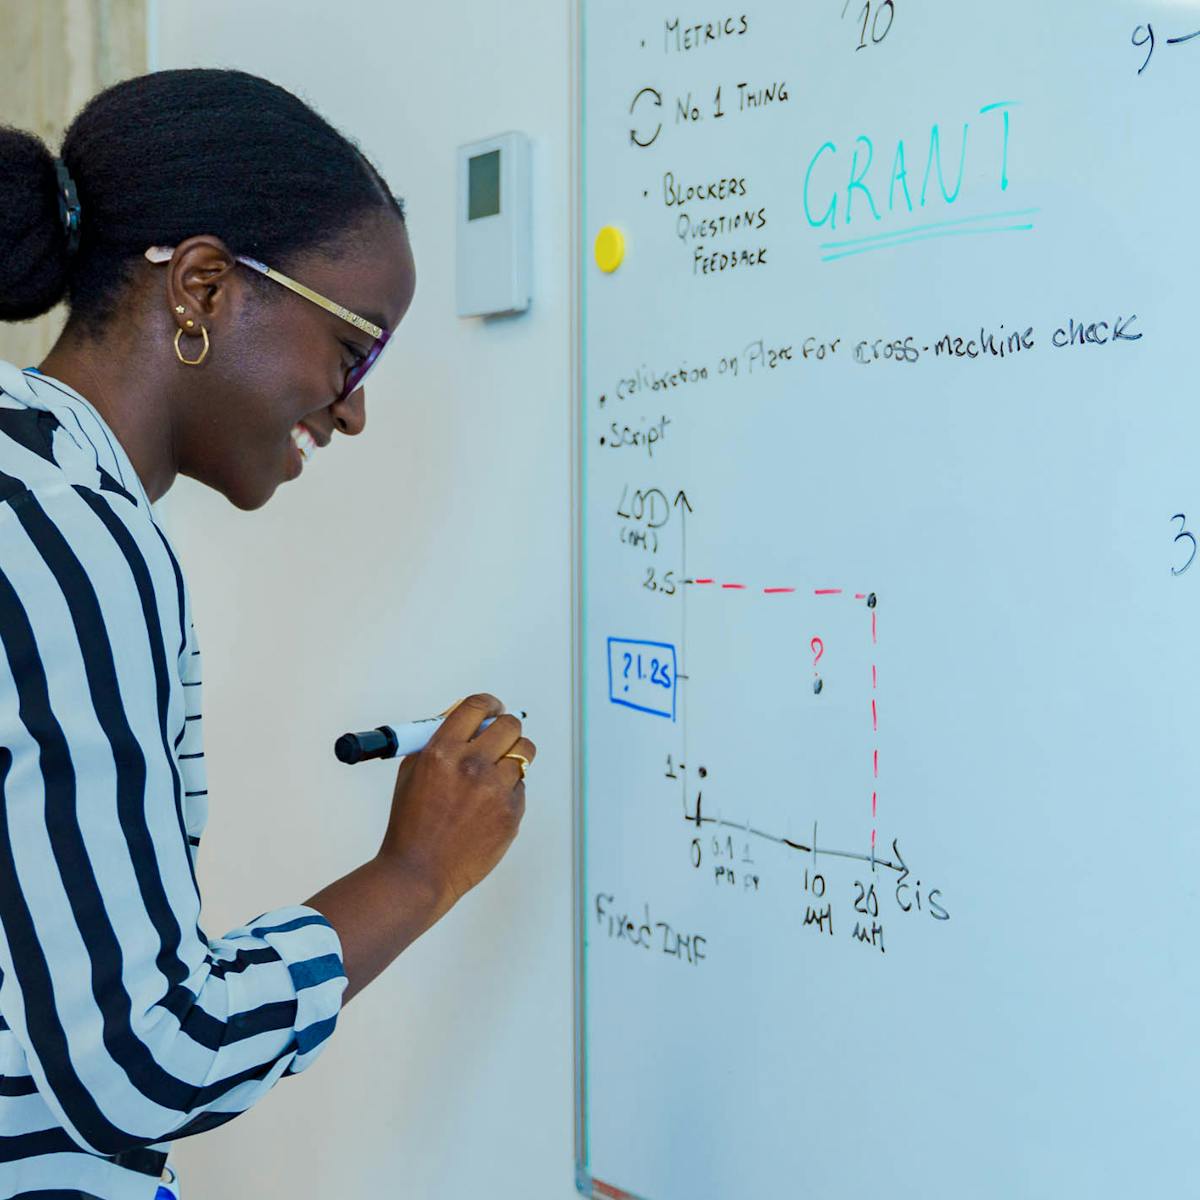 • METRICS
10
9-
No. 1 THING
GRANT
• BLOCKERS
QUESTIONS
FEEDBACK
• calibration on Plate For cross-machine check
• Script
LOD
(nM)
2.5
?
? 1.25
1
0 0.1 1 10 20 Cis
µM µM
3
Fixed DMF